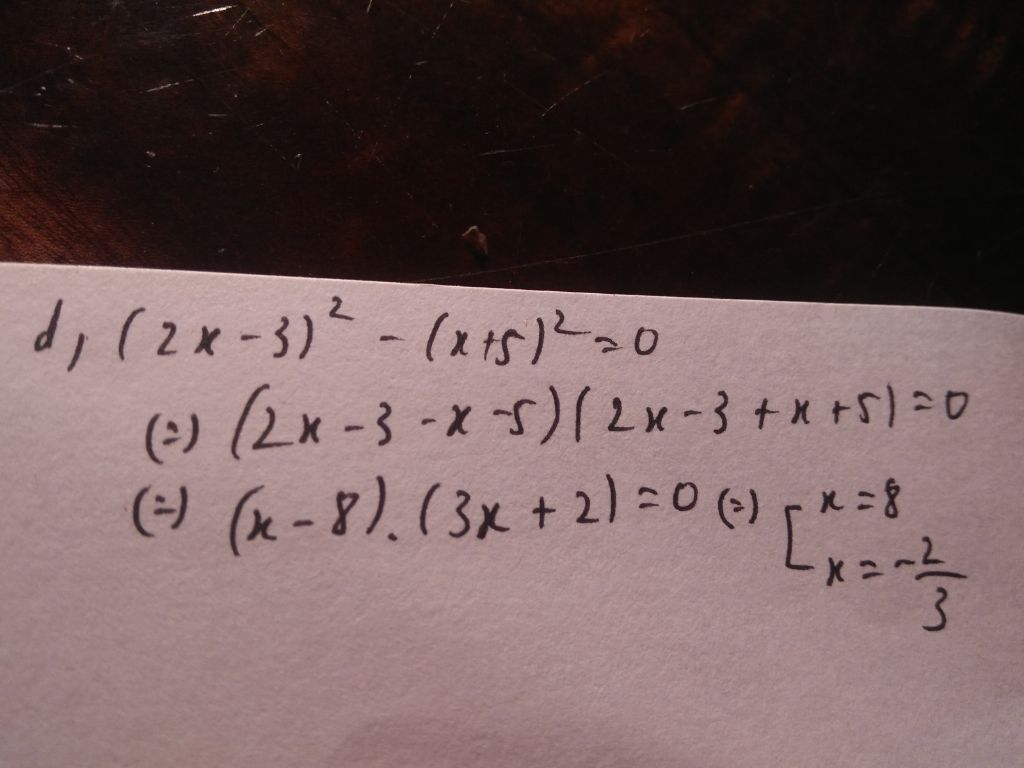 d, (2x-3)² - (x+5)² = 0
(=) (2x-3-x-5)(2x-3+x+5) = 0
(=) (x-8).(3x+2) = 0 (=) [ x = 8
x = -2/3